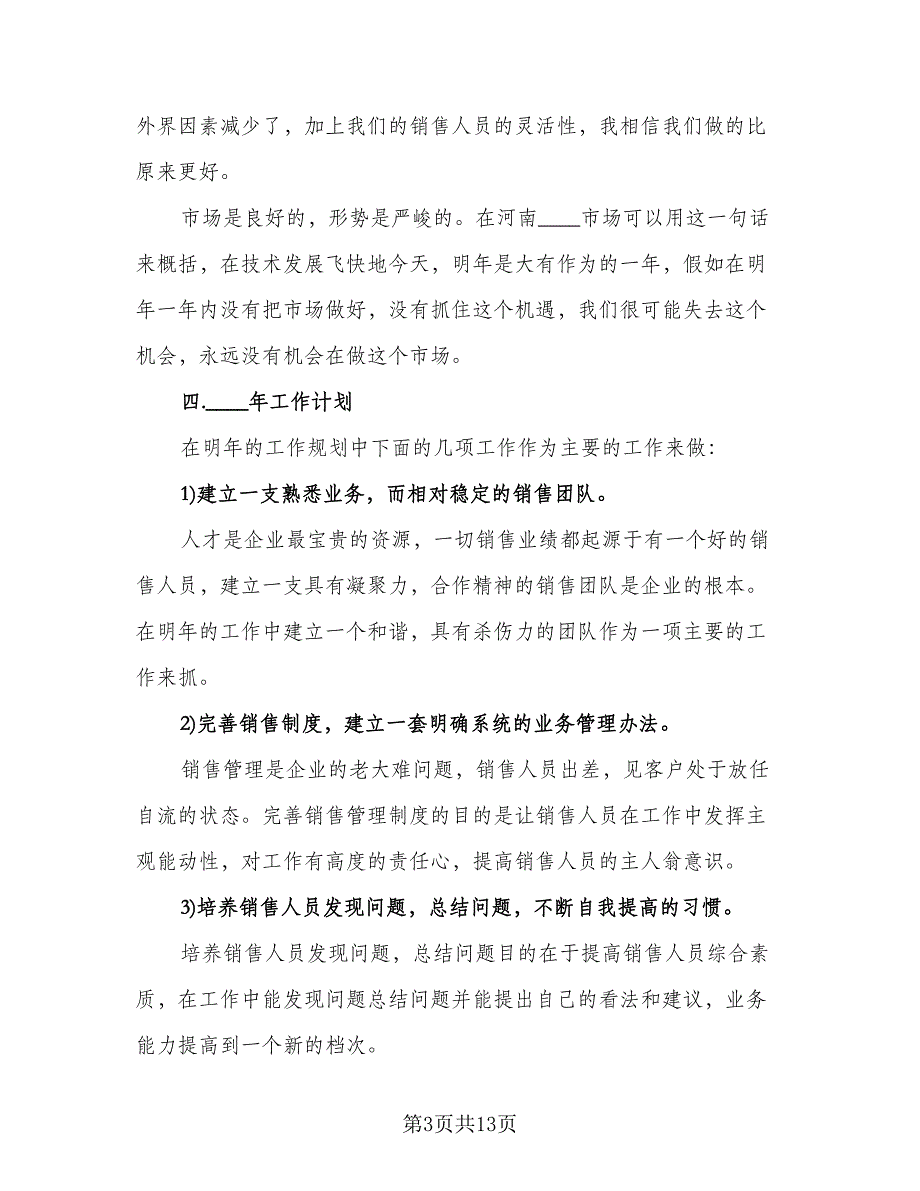 外界因素减少了，加上我们的销售人员的灵活性，我相信我们做的比
原来更好。
市场是良好的，形势是严峻的。在河南____市场可以用这一句话
来概括，在技术发展飞快地今天，明年是大有作为的一年，假如在明
年一年内没有把市场做好，没有抓住这个机遇，我们很可能失去这个
机会，永远没有机会在做这个市场。
四.____年工作计划
在明年的工作规划中下面的几项工作作为主要的工作来做：
1)建立一支熟悉业务，而相对稳定的销售团队。
人才是企业最宝贵的资源，一切销售业绩都起源于有一个好的销
售人员，建立一支具有凝聚力，合作精神的销售团队是企业的根本。
在明年的工作中建立一个和谐，具有杀伤力的团队作为一项主要的工
作来抓。
2)完善销售制度，建立一套明确系统的业务管理办法。
销售管理是企业的老大难问题，销售人员出差，见客户处于放任
自流的状态。完善销售管理制度的目的是让销售人员在工作中发挥主
观能动性，对工作有高度的责任心，提高销售人员的主人翁意识。
3)培养销售人员发现问题，总结问题，不断自我提高的习惯。
培养销售人员发现问题，总结问题目的在于提高销售人员综合素
质，在工作中能发现问题总结问题并能提出自己的看法和建议，业务
能力提高到一个新的档次。
第3页共13页